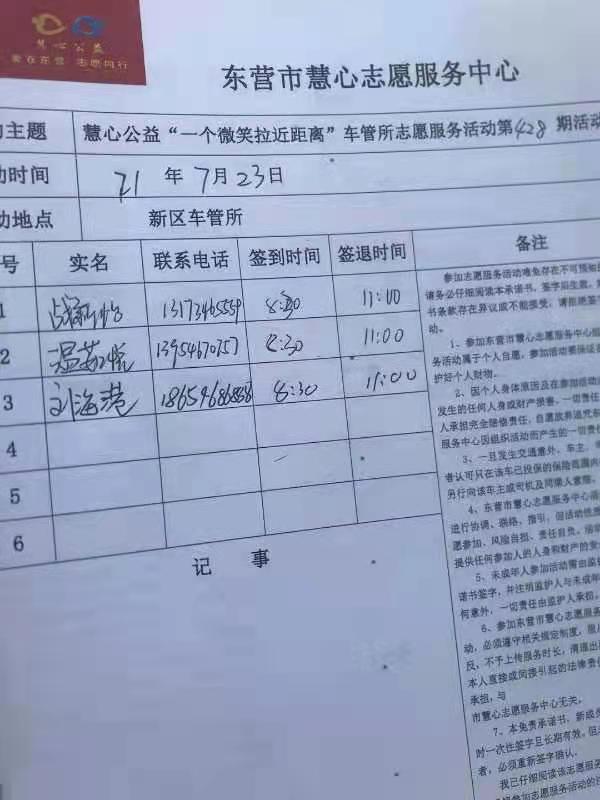 慧心公益
爱在东营 志愿同行
东营市慧心志愿服务中心
主题 慧心公益“一个微笑拉近距离”车管所志愿服务活动第428期活动
动时间 21年7月23日
动地点 新区车管所
号 实名 联系电话 签到时间 签退时间 备注
1 13173465559 8:30 11:00
2 温 13954670757 8:30 11:00
3 刘海港 18654686888 8:30 11:00
4
5
6
记 事
参加志愿服务活动难免存在不可预知
请务必仔细阅读本承诺书，签字后生效。
书条款存在异议或不能接受，请拒绝签
动。
1、参加东营市慧心志愿服务中心组
务活动属于个人自愿，参加活动要保证
护好个人财物。
2、因个人身体原因及在参加活动
发生的任何人身或财产损害，一切责任
人承担完全赔偿责任，自愿放弃追究东
服务中心因组织活动而产生的一切责
3、一旦发生交通意外，车主、
者认可只在该车已投保的保险范围内
另行向该车主或司机及同乘人索赔。
4、东营市慧心志愿服务中心
进行协调、联络、指引，但活动性质
愿参加、风险自担、责任自负，活动
提供任何参加人的人身和财产的安
5、未成年人参加活动需由监
诺书签字，并注明监护人与未成年
何意外，一切责任由监护人承担。
6、参加东营市慧心志愿服务
动，必须遵守相关规定制度，服
反，不予上传服务时长，清退出
本人直接或间接引起的法律责
承担，与
市慧心志愿服务中心无关。
7、本免责承诺书，新成
时一次性签字且长期有效，但
者，必须重新签字确认。
我已仔细阅读该志愿服